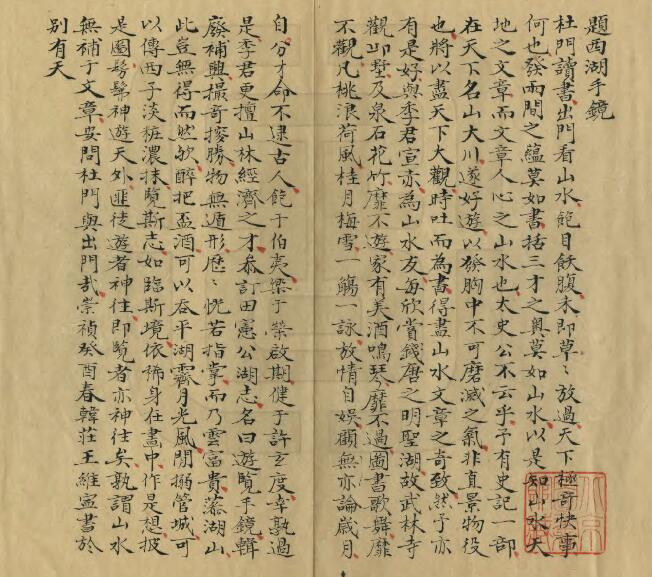 題西湖手鏡
杜門讀書出門看山水飽目飫腹未即草〻放過天下極奇快事
何也發兩間之蘊莫如書括三才之奥莫如山水以是知山水天
地之文章而文章人心之山水也太史公不云乎予有史記一部
在天下名山大川遂好遊以發胸中不可磨滅之氣非直景物役
也將以盡天下大觀時吐而為書得盡山水文章之奇致然予亦
有是好與李君宣亦為山水友每欣賞錢唐之明聖湖故武林寺
觀邱墅及泉石花竹靡不遊家有美酒鳴琴靡不過圖書歌舞靡
不觀凡桃浪荷風桂月梅雪一觴一詠放情自娛顧無亦論歲月
自分才命不逮古人飽于伯夷樂于榮啟期健于許玄度幸孰過
是李君更擅山林經濟之才叅訂田憲公湖志名曰遊覽手鏡輯
廢補興撮奇搜勝物無遁形歷〻恍若指掌而乃雲富貴藻湖山
此豈無得而然歟醉把盃酒可以吞平湖霽月光風閒搦管城可
以傳西子淡粧濃抹覽斯志如臨斯境依稀身在畫中作是想披
是圖髣髴神遊天外匪徒遊者神往即覽者亦神往矣孰謂山水
無補于文章安問杜門與出門哉崇禎癸酉春韓莊王維寍書於
別有天